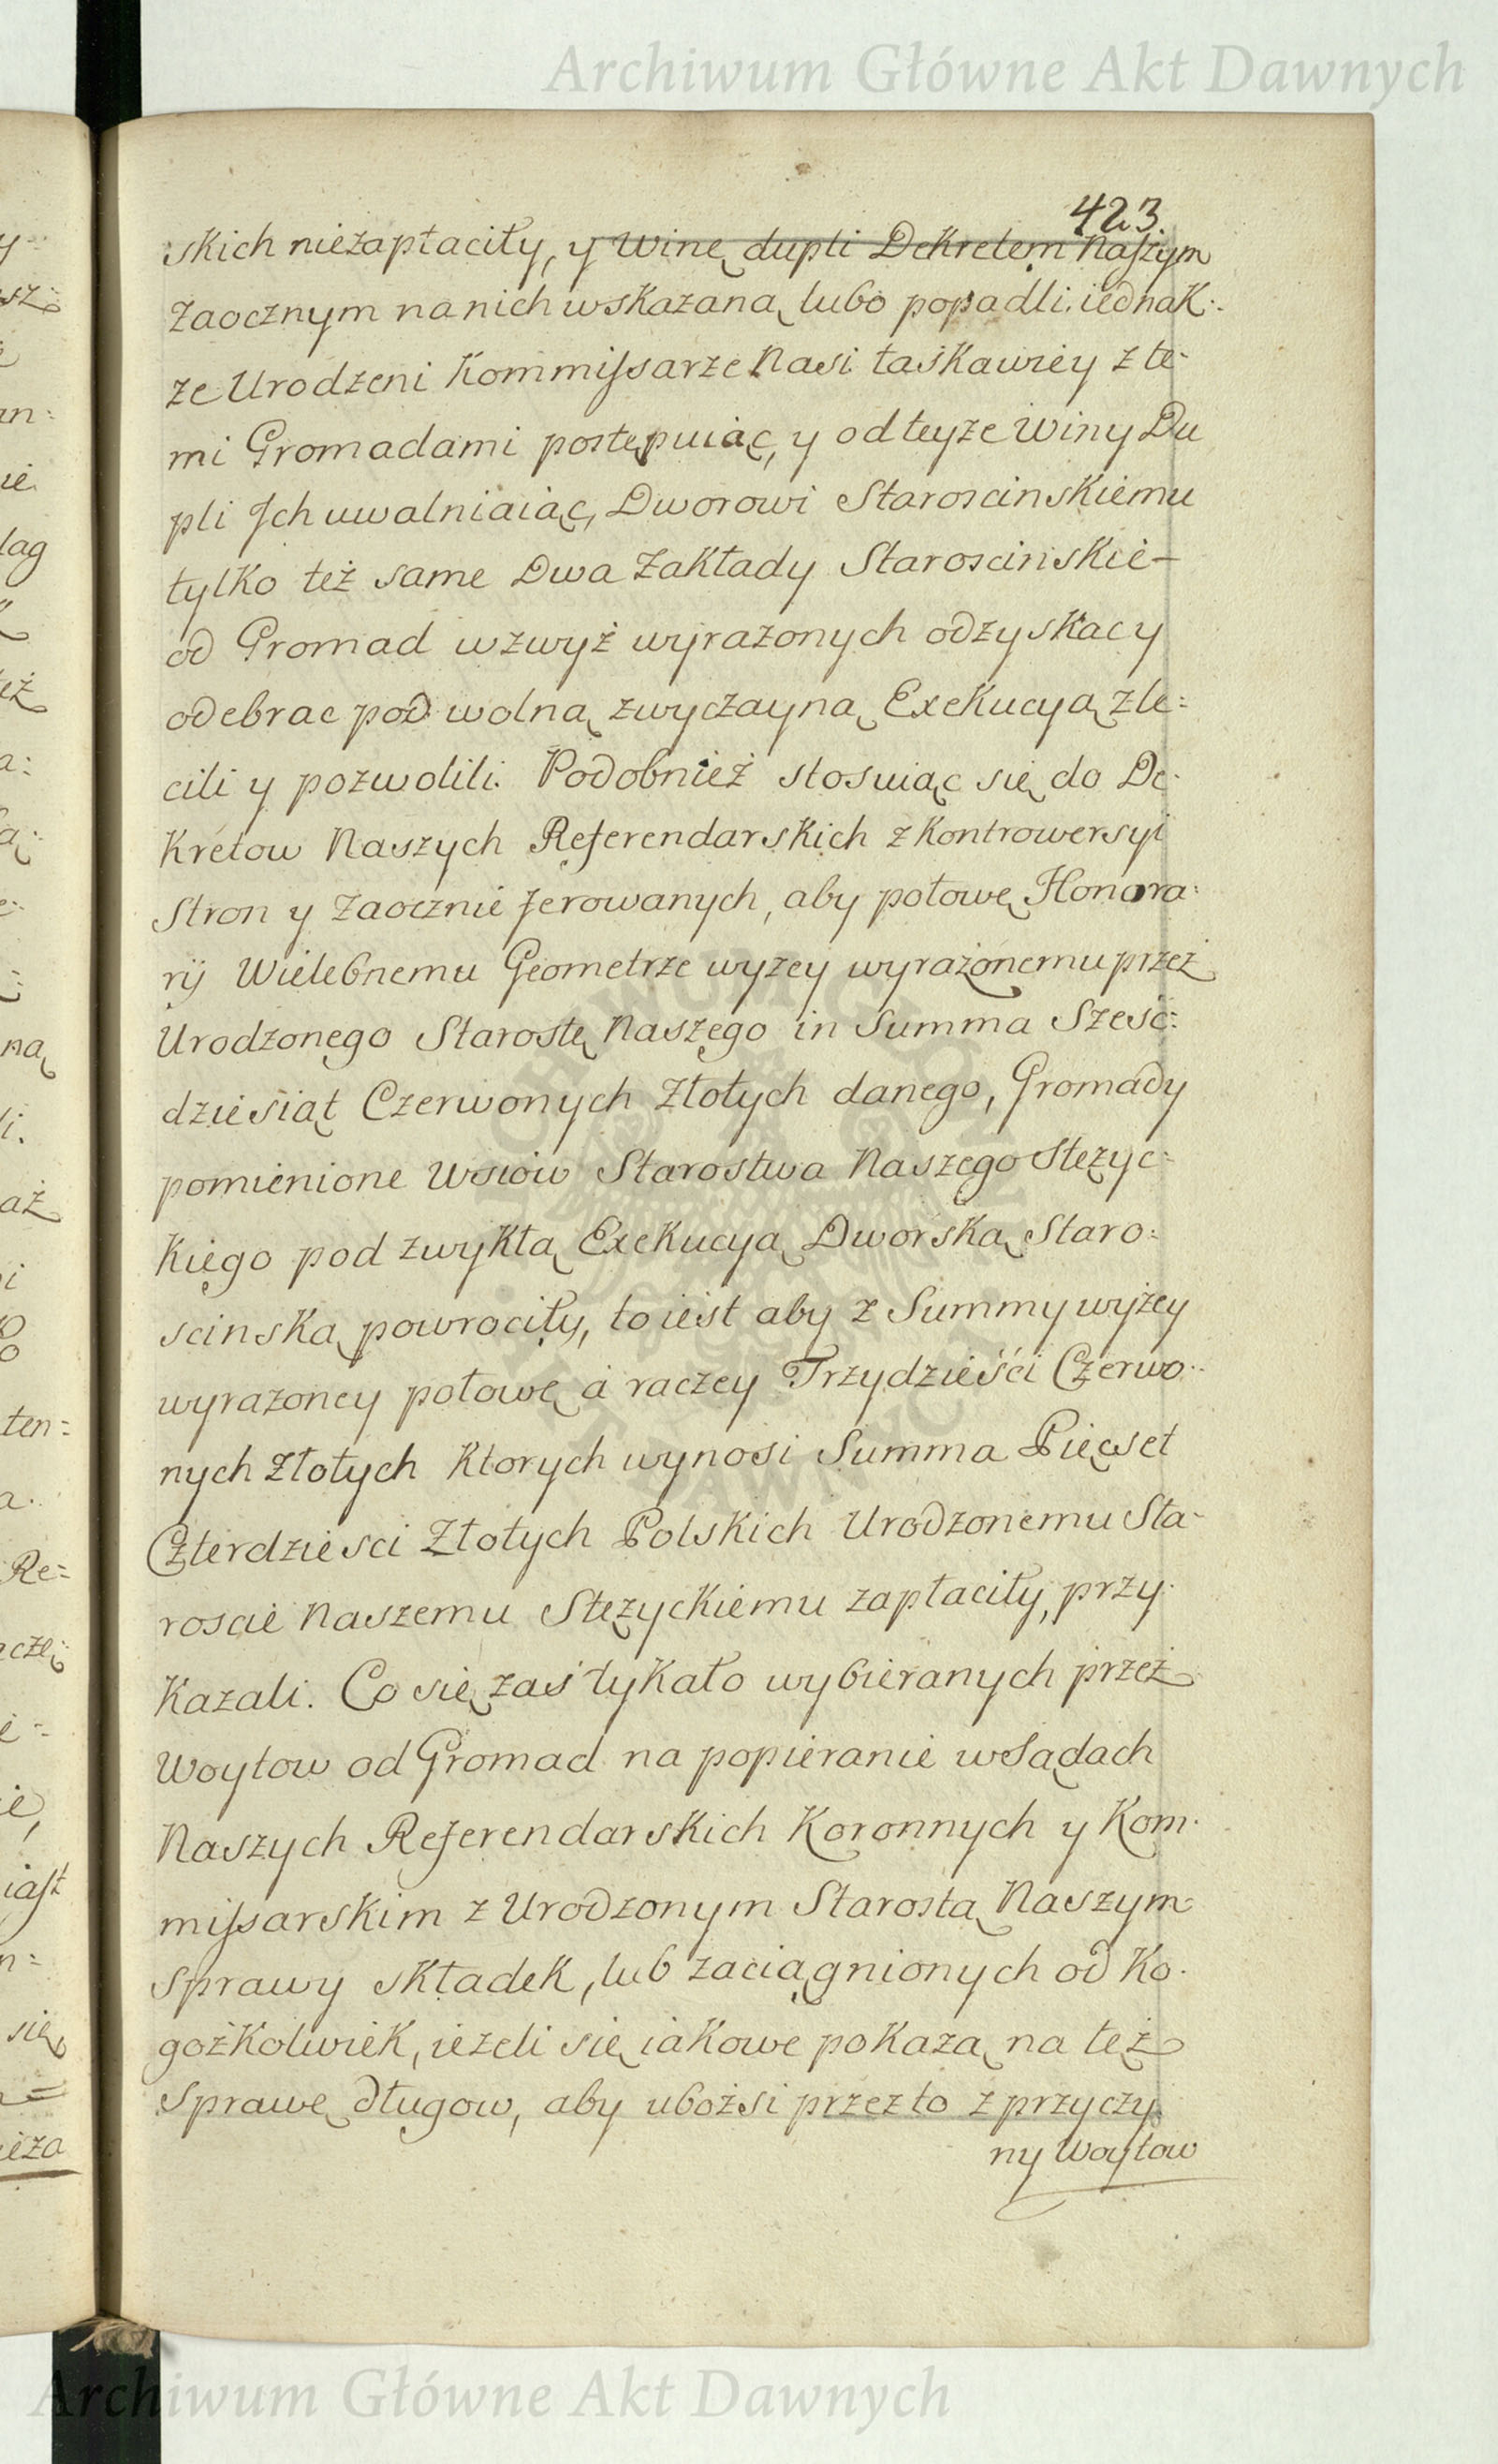 Archiwum Główne Akt Dawnych
423.
skich niezapłaciły, y winę dupli Dekretem Naszym
Zaocznym na nich wskazaną lubo popadli. iednak-
ze Urodzeni Kommissarze Nasi łaskawiey z te-
mi Gromadami postępuiąc, y od teyże Winy Du
pli Ich uwalniaiąc, Dworowi Staroscinskiemu
tylko też same Dwa Zakłady Staroscinskie-
od Gromad wzwyż wyrażonych odzyskac y
odebrac pod wolną zwyczayną Exekucyą zle:
cili y pozwolili. Podobnież stosuiąc się do De-
kretow Naszych Referendarskich z kontrowersyi
Stron y Zaocznie ferowanych, aby połowę Honora:
rij Wielebnemu Geometrze wyzey wyrażonemu przez
Urodzonego Starostę Naszego in Summa Szesc:
dziesiąt Czerwonych Złotych danego, Gromady
pomienione Wsiow Starostwa Naszego Stęzyc:
kiego pod zwykłą Exekucyą Dworską Staro:
scinską powrociły, to iest aby z Summy wyżey
wyrazoney połowę á raczey Trzydzieści Czerwo-
nych Złotych ktorych wynosi Summa Pięcset
Czterdziesci Złotych Polskich Urodzonemu Sta-
roscie Naszemu Stęzyckiemu zapłaciły, przy-
kazali. Co się zaś tykało wybieranych przez
Woytow od Gromad na popieranie w Sądach
Naszych Referendarskich Koronnych y Kom-
missarskim z Urodzonym Starostą Naszym
Sprawy składek, lub zaciągnionych od Ko-
goźkolwiek, ieżeli się iakowe pokażą na też
Sprawę długow, aby ubożsi przez to z przyczy
ny Woytow
Archiwum Główne Akt Dawnych